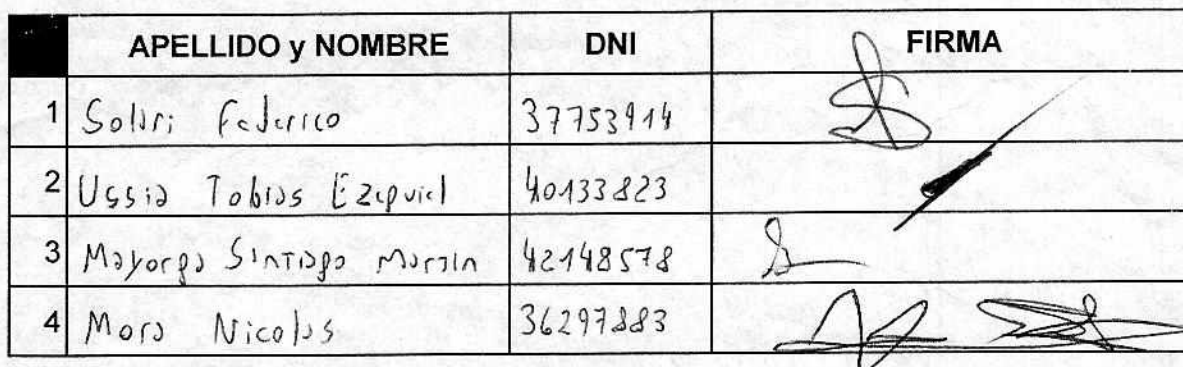 APELLIDO y NOMBRE DNI FIRMA
1 Solari Federico 37753914
2 Ussia Tobias Ezequiel 40133823
3 Mayorga Santiago Martin 42148578
4 Mora Nicolas 36297883